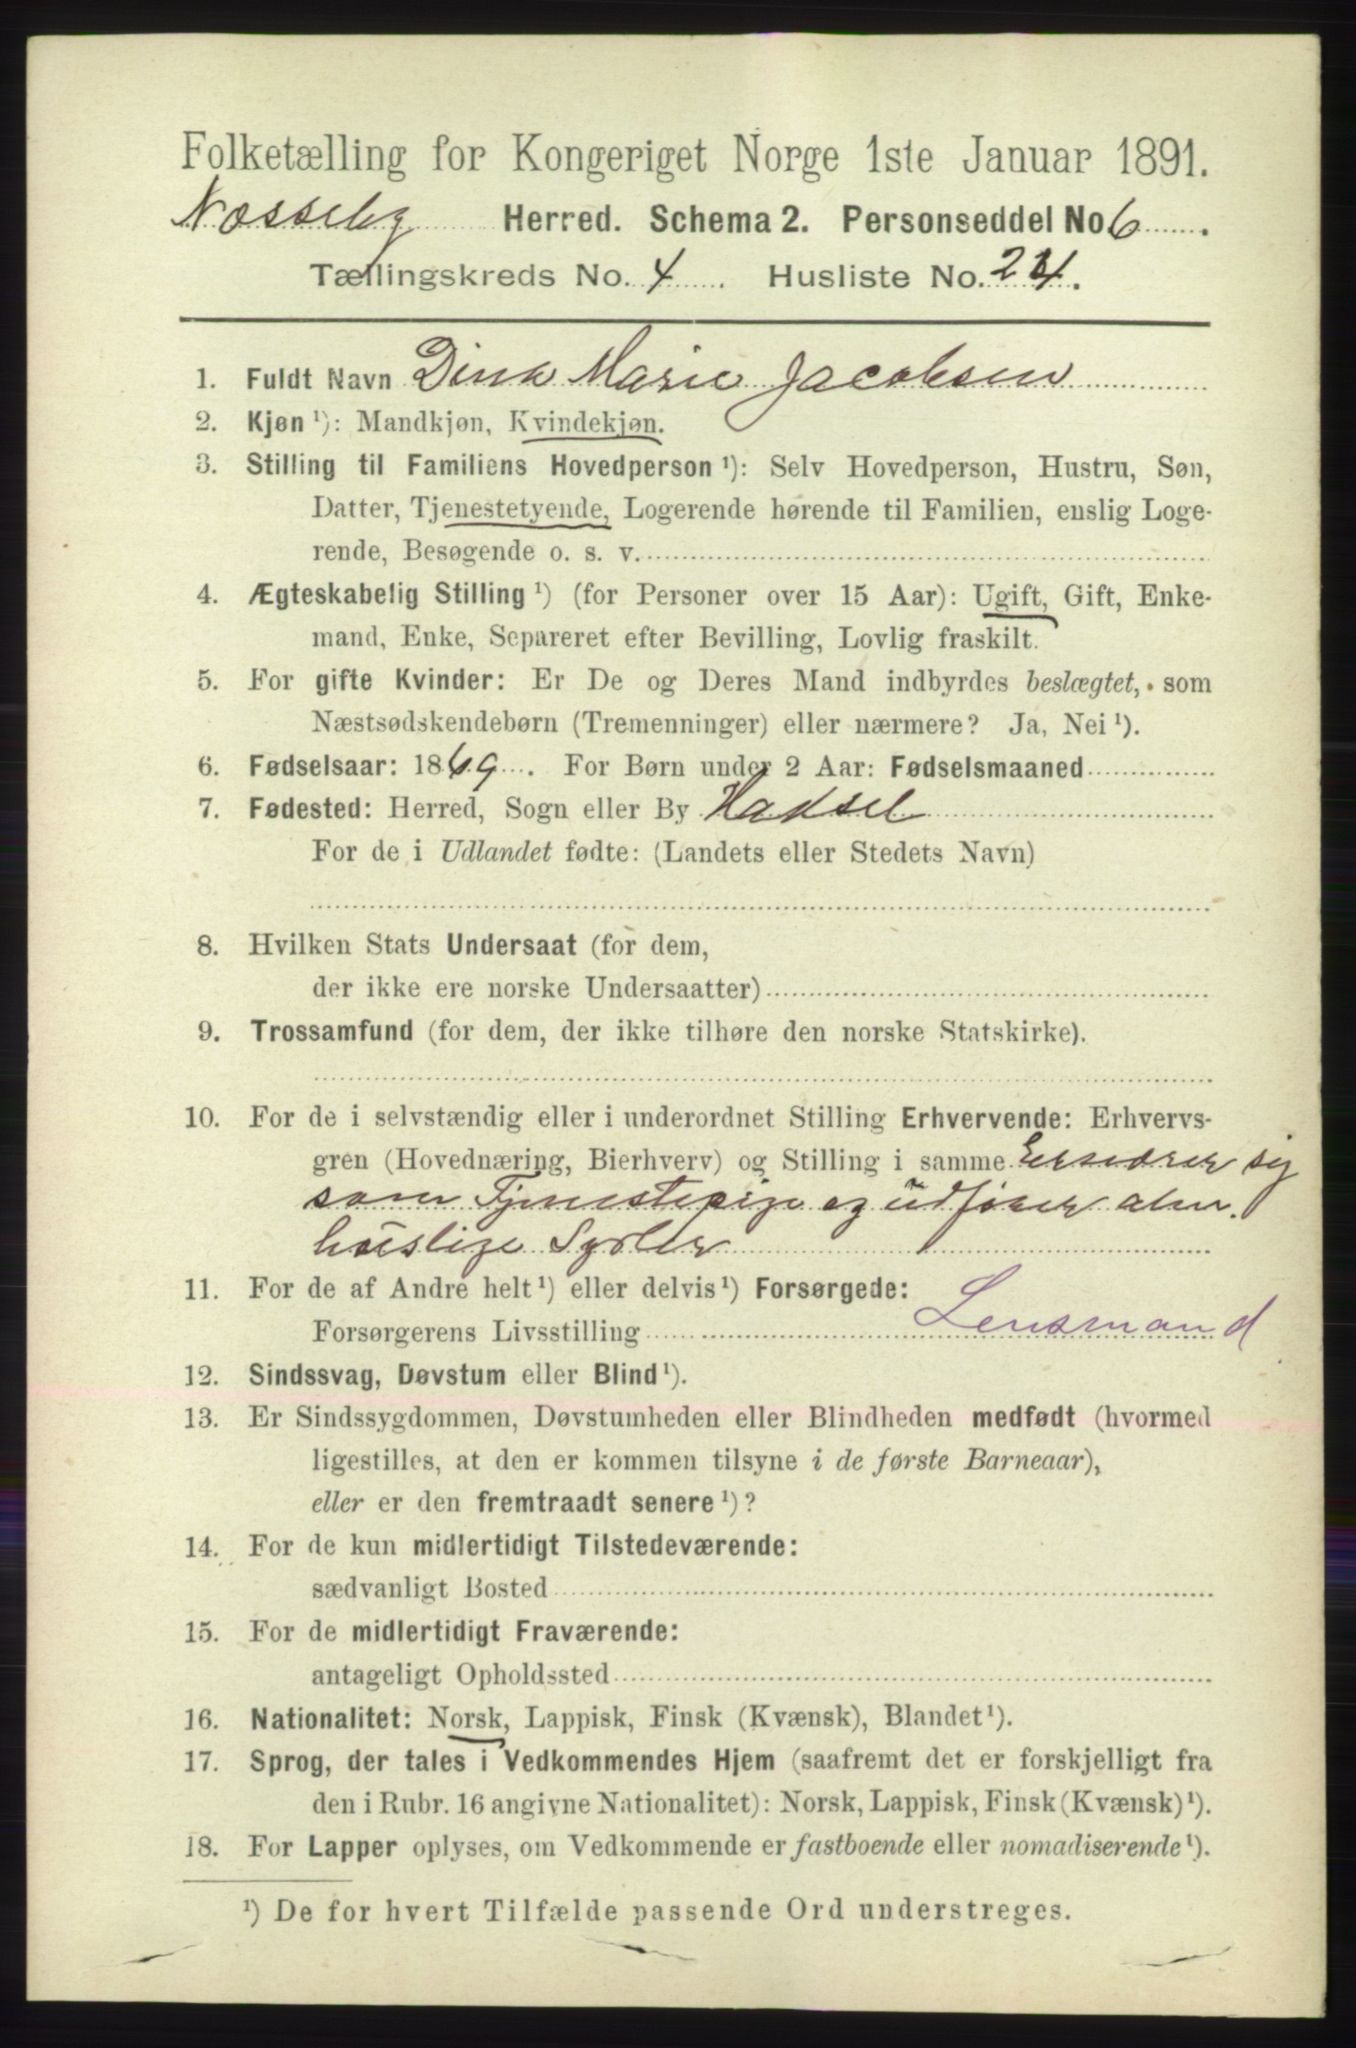 Folketælling for Kongeriget Norge 1ste Januar 1891.
Næsseby Herred. Schema 2. Personseddel No. 6
Tællingskreds No. 4 Husliste No. 24.
1. Fuldt Navn Dina Marie Jacobsen
2. Kjøn ¹): Mandkjøn, Kvindekjøn.
3. Stilling til Familiens Hovedperson ¹): Selv Hovedperson, Hustru, Søn,
Datter, Tjenestetyende, Logerende hørende til Familien, enslig Loge-
rende, Besøgende o. s. v.
4. Ægteskabelig Stilling ¹) (for Personer over 15 Aar): Ugift, Gift, Enke-
mand, Enke, Separeret efter Bevilling, Lovlig fraskilt.
5. For gifte Kvinder: Er De og Deres Mand indbyrdes beslægtet, som
Næstsødskendebørn (Tremenninger) eller nærmere? Ja, Nei ¹).
6. Fødselsaar: 1869. For Børn under 2 Aar: Fødselsmaaned
7. Fødested: Herred, Sogn eller By Hadsel
For de i Udlandet fødte: (Landets eller Stedets Navn)
8. Hvilken Stats Undersaat (for dem,
der ikke ere norske Undersaatter)
9. Trossamfund (for dem, der ikke tilhøre den norske Statskirke).
10. For de i selvstændig eller i underordnet Stilling Erhvervende: Erhvervs-
gren (Hovednæring, Bierhverv) og Stilling i samme Ernærer sig
som Tjenestepige og udfører alm.
huslige Sysler
11. For de af Andre helt ¹) eller delvis ¹) Forsørgede:
Forsørgerens Livsstilling Lensmand
12. Sindssvag, Døvstum eller Blind ¹).
13. Er Sindssygdommen, Døvstumheden eller Blindheden medfødt (hvormed
ligestilles, at den er kommen tilsyne i de første Barneaar),
eller er den fremtraadt senere ¹)?
14. For de kun midlertidigt Tilstedeværende:
sædvanligt Bosted
15. For de midlertidigt Fraværende:
antageligt Opholdssted
16. Nationalitet: Norsk, Lappisk, Finsk (Kvænsk), Blandet ¹).
17. Sprog, der tales i Vedkommendes Hjem (saafremt det er forskjelligt fra
den i Rubr. 16 angivne Nationalitet): Norsk, Lappisk, Finsk (Kvænsk) ¹).
18. For Lapper oplyses, om Vedkommende er fastboende eller nomadiserende ¹).
¹) De for hvert Tilfælde passende Ord understreges.